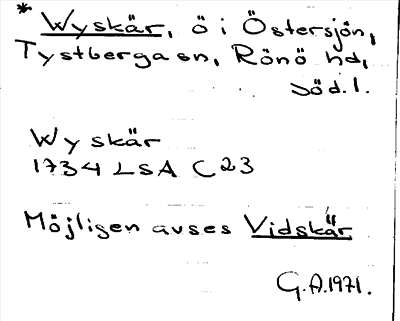 * Wyskär, ö i Östersjön,
Tystberga sn, Rönö hd,
Söd. l.
Wyskär
1734 LSA C23
Möjligen avses Vidskär
G.A.1971.